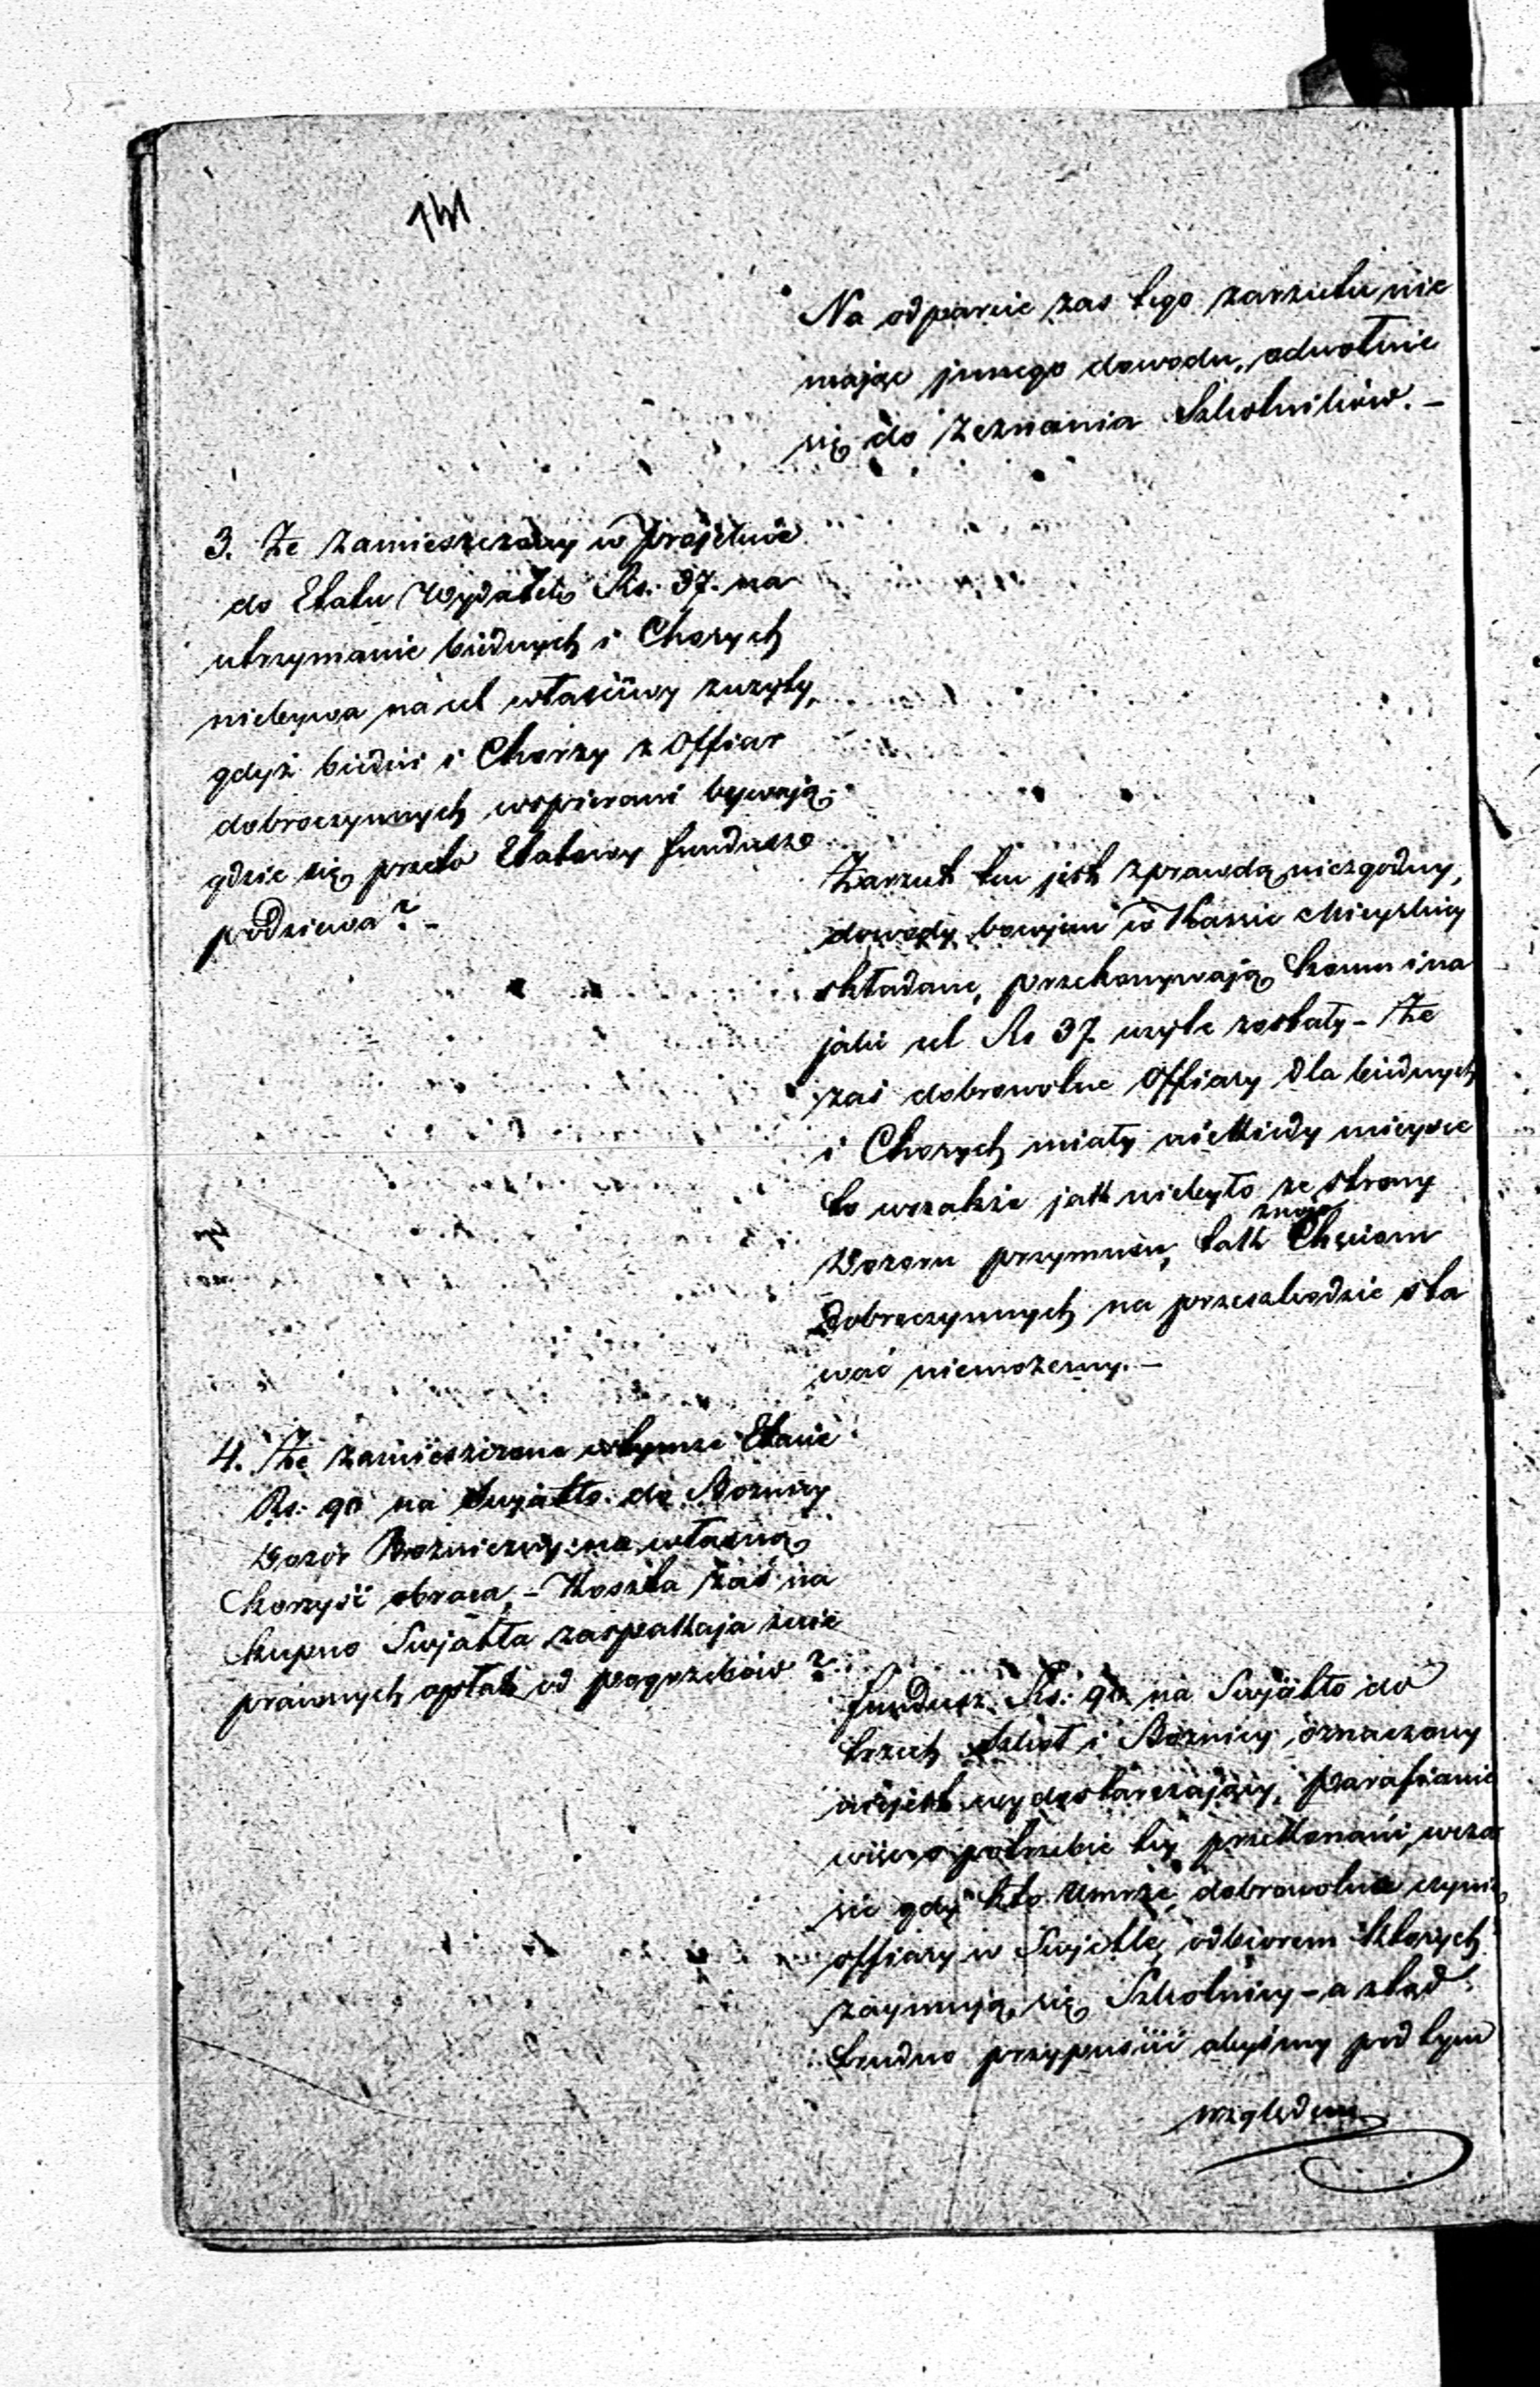 141
Na odparcie zas tego zarzutu nie
mając jnnego dowodu, odwołuie
się do zeznania Szkolników. -
3. Że zamieszczony w projekcie
do Etatu Wydatek Rs. 37. na
utrzymanie biednych i Chorych
niebywa na cel właściwy zużyty,
gdyż biedni i Chorzy z Offiar
dobroczynnych wspierani bywają
gdzie się przeto Etatowy fundusz
podziewa? -
Zarzut ten jest z prawdą niezgodny,
dowody bowjem w Kassie Mieyskiey
składane, przekonywają komu i na
jaki cel Rs 37 użyte zostały - Że
zaś dobrowolne Offiary dla biednych
i Chorych miały niekiedy mieysce
to wszakże jak niebyło ze strony
Dozoru przymusu, tak Chęciom
dobroczynnych na przeszkodzie sta
wać niemożemy. -
4. Że zamieszczone w tymże Etacie
Rs. 90 na Swjatło do Boznicy
Dozór Bożniczy na własną
korzyść obraca, - Koszta zaś na
kupno Swjatła zaspakaja z nie
prawnych opłat od pogrzebów?
fundusz Rs. 90 na Swjatło do
trzech Szkół i Bożnicy oznaczony
niejest wydostarczający, Parafianie
więc o potrzebie tey przekonani, wcza
sie gdy kto Umrze, dobrowolnie czynią
offiary w Swjetle, odbiorem których
zaymują się Szkolnicy - a ztąd
trudno przypuścić abyśmy pod tym
względem